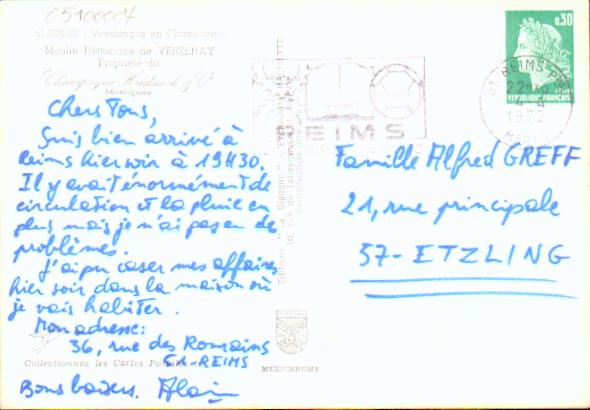 05100007
51.000.02 - Vendanges en Champagne
Moulin Historique de VERZENAY
Propriété du
Champagne Heidsieck & Cº
Monopole
Chers Tous,
Suis bien arrivé à
Reims hier soir à 19H30.
Il y avait énormément de
circulation et la pluie en
plus mais je n'ai pas eu de
problèmes.
J'ai pu caser mes affaires
hier soir dans la maison où
je vais habiter.
Mon adresse:
36, rue des Romains
51-REIMS
Collectionnez les Cartes
Bons baisers. Alain
Editions "La Cigogne"
MEXICHROME
REIMS
0,30
REPUBLIQUE FRANÇAISE
REIMS
1972
MARNE
Famille Alfred GREFF
21, rue principale
57- ETZLING